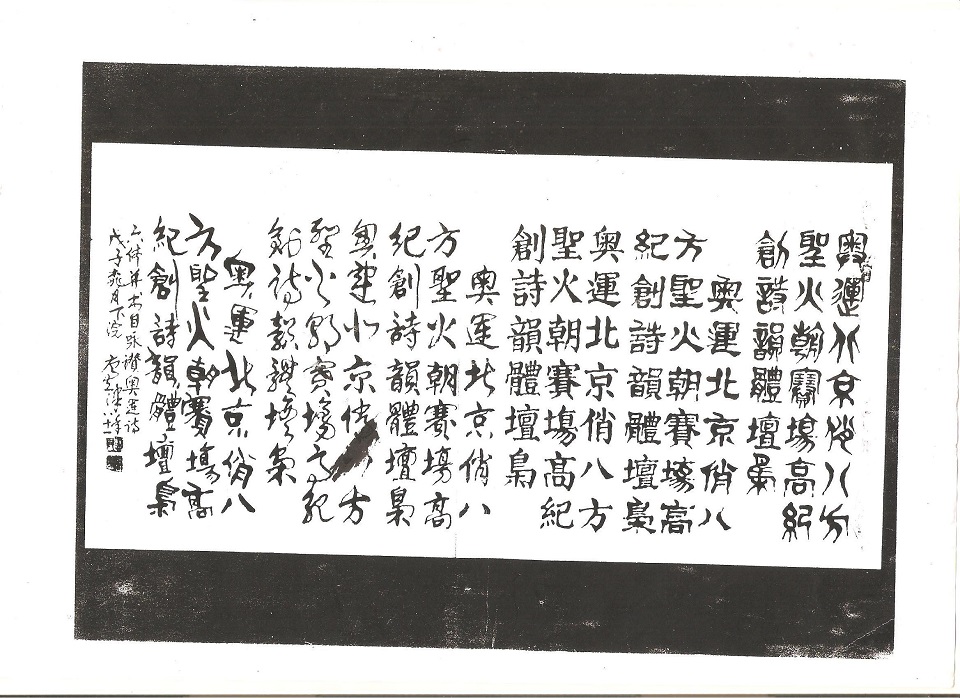 奧運北京俏八方
聖火朝賽場高紀
創詩韻體壇梟
奧運北京俏八
方聖火朝賽場高
紀創詩韻體壇梟
奧運北京俏八方
聖火朝賽場高紀
創詩韻體壇梟
奧運北京俏八
方聖火朝賽場高
紀創詩韻體壇梟
奧運北京俏方
聖火朝賽場高紀
創詩韻體壇梟
奧運北京俏八
方聖火朝賽場高
紀創詩韻體壇梟
六体并书自咏讚奧运诗
戊子桃月下浣